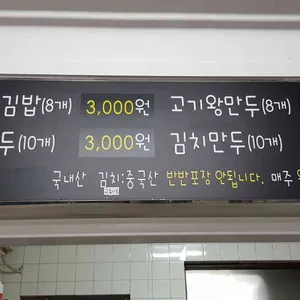 김밥(8개) 3,000원 고기왕만두(8개)
두(10개) 3,000원 김치만두(10개)
국내산 김치:중국산 반반포장 안됩니다. 매주